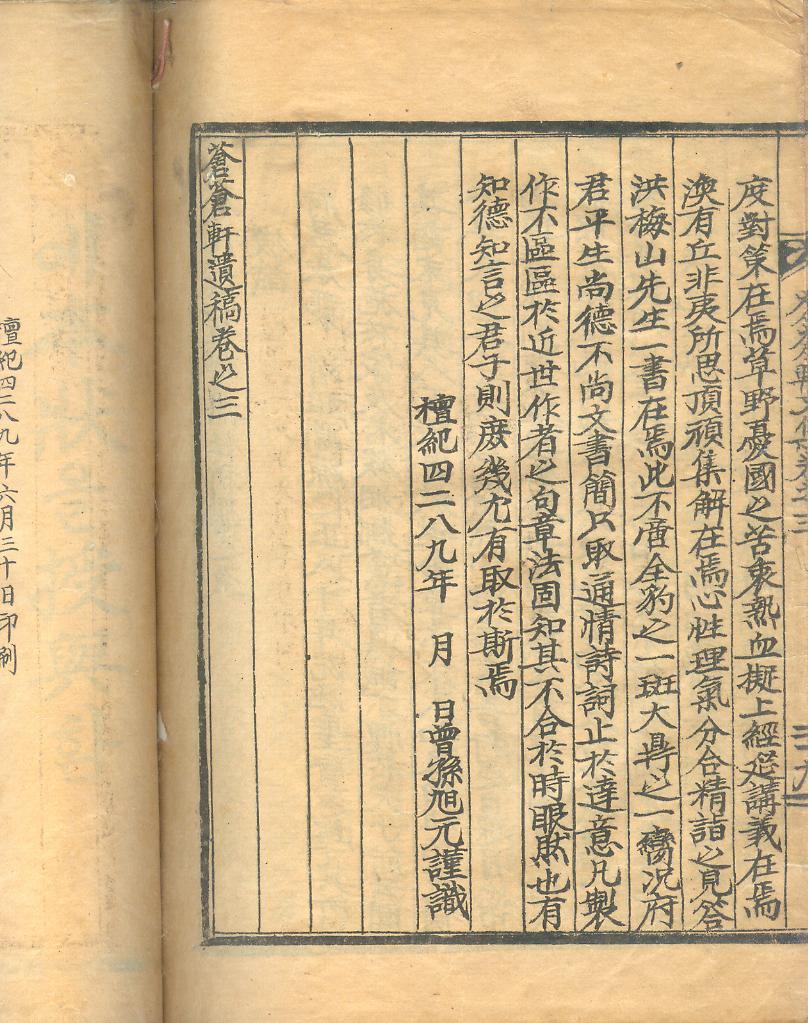 度對策在焉草野憂國之苦衷熱血擬上經筵講義在焉
渙有丘非夷所思頂頑集解在焉心性理氣分合精詣之見答
洪梅山先生一書在焉此不啻全豹之一斑大鼎之一臠況府
君平生尚德不尚文書簡只取通情詩詞止於達意凡製
作不區區於近世作者之句章法固知其不合於時眼然也有
知德知言之君子則庶幾尤有取於斯焉
檀紀四二八九年 月 日曾孫旭元謹識
蒼蒼軒遺稿卷之三
檀紀四二八九年六月三十日印刷